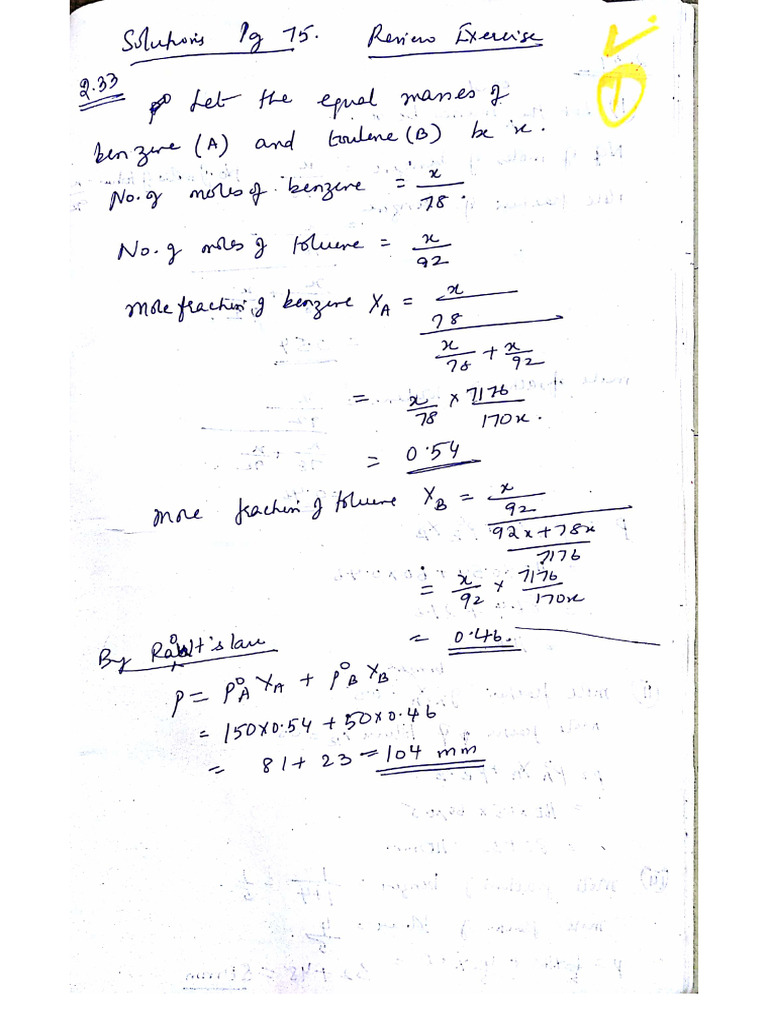 Solutions Pg 75. Review Exercise
1
2.33 Let the equal masses of
benzene (A) and toulene (B) be x.
No. of moles of benzene = x/78.
No. of moles of toluene = x/92
Mole fraction of benzene XA = (x/78)/(x/78 + x/92)
= x/78 × 7176/170x.
= 0.54
Mole fraction of toluene XB = (x/92)/((92x+78x)/7176)
= x/92 × 7176/170x
= 0.46.
By Raoult's law
P = P°A XA + P°B XB
= 150×0.54 + 50×0.46
= 81 + 23 = 104 mm